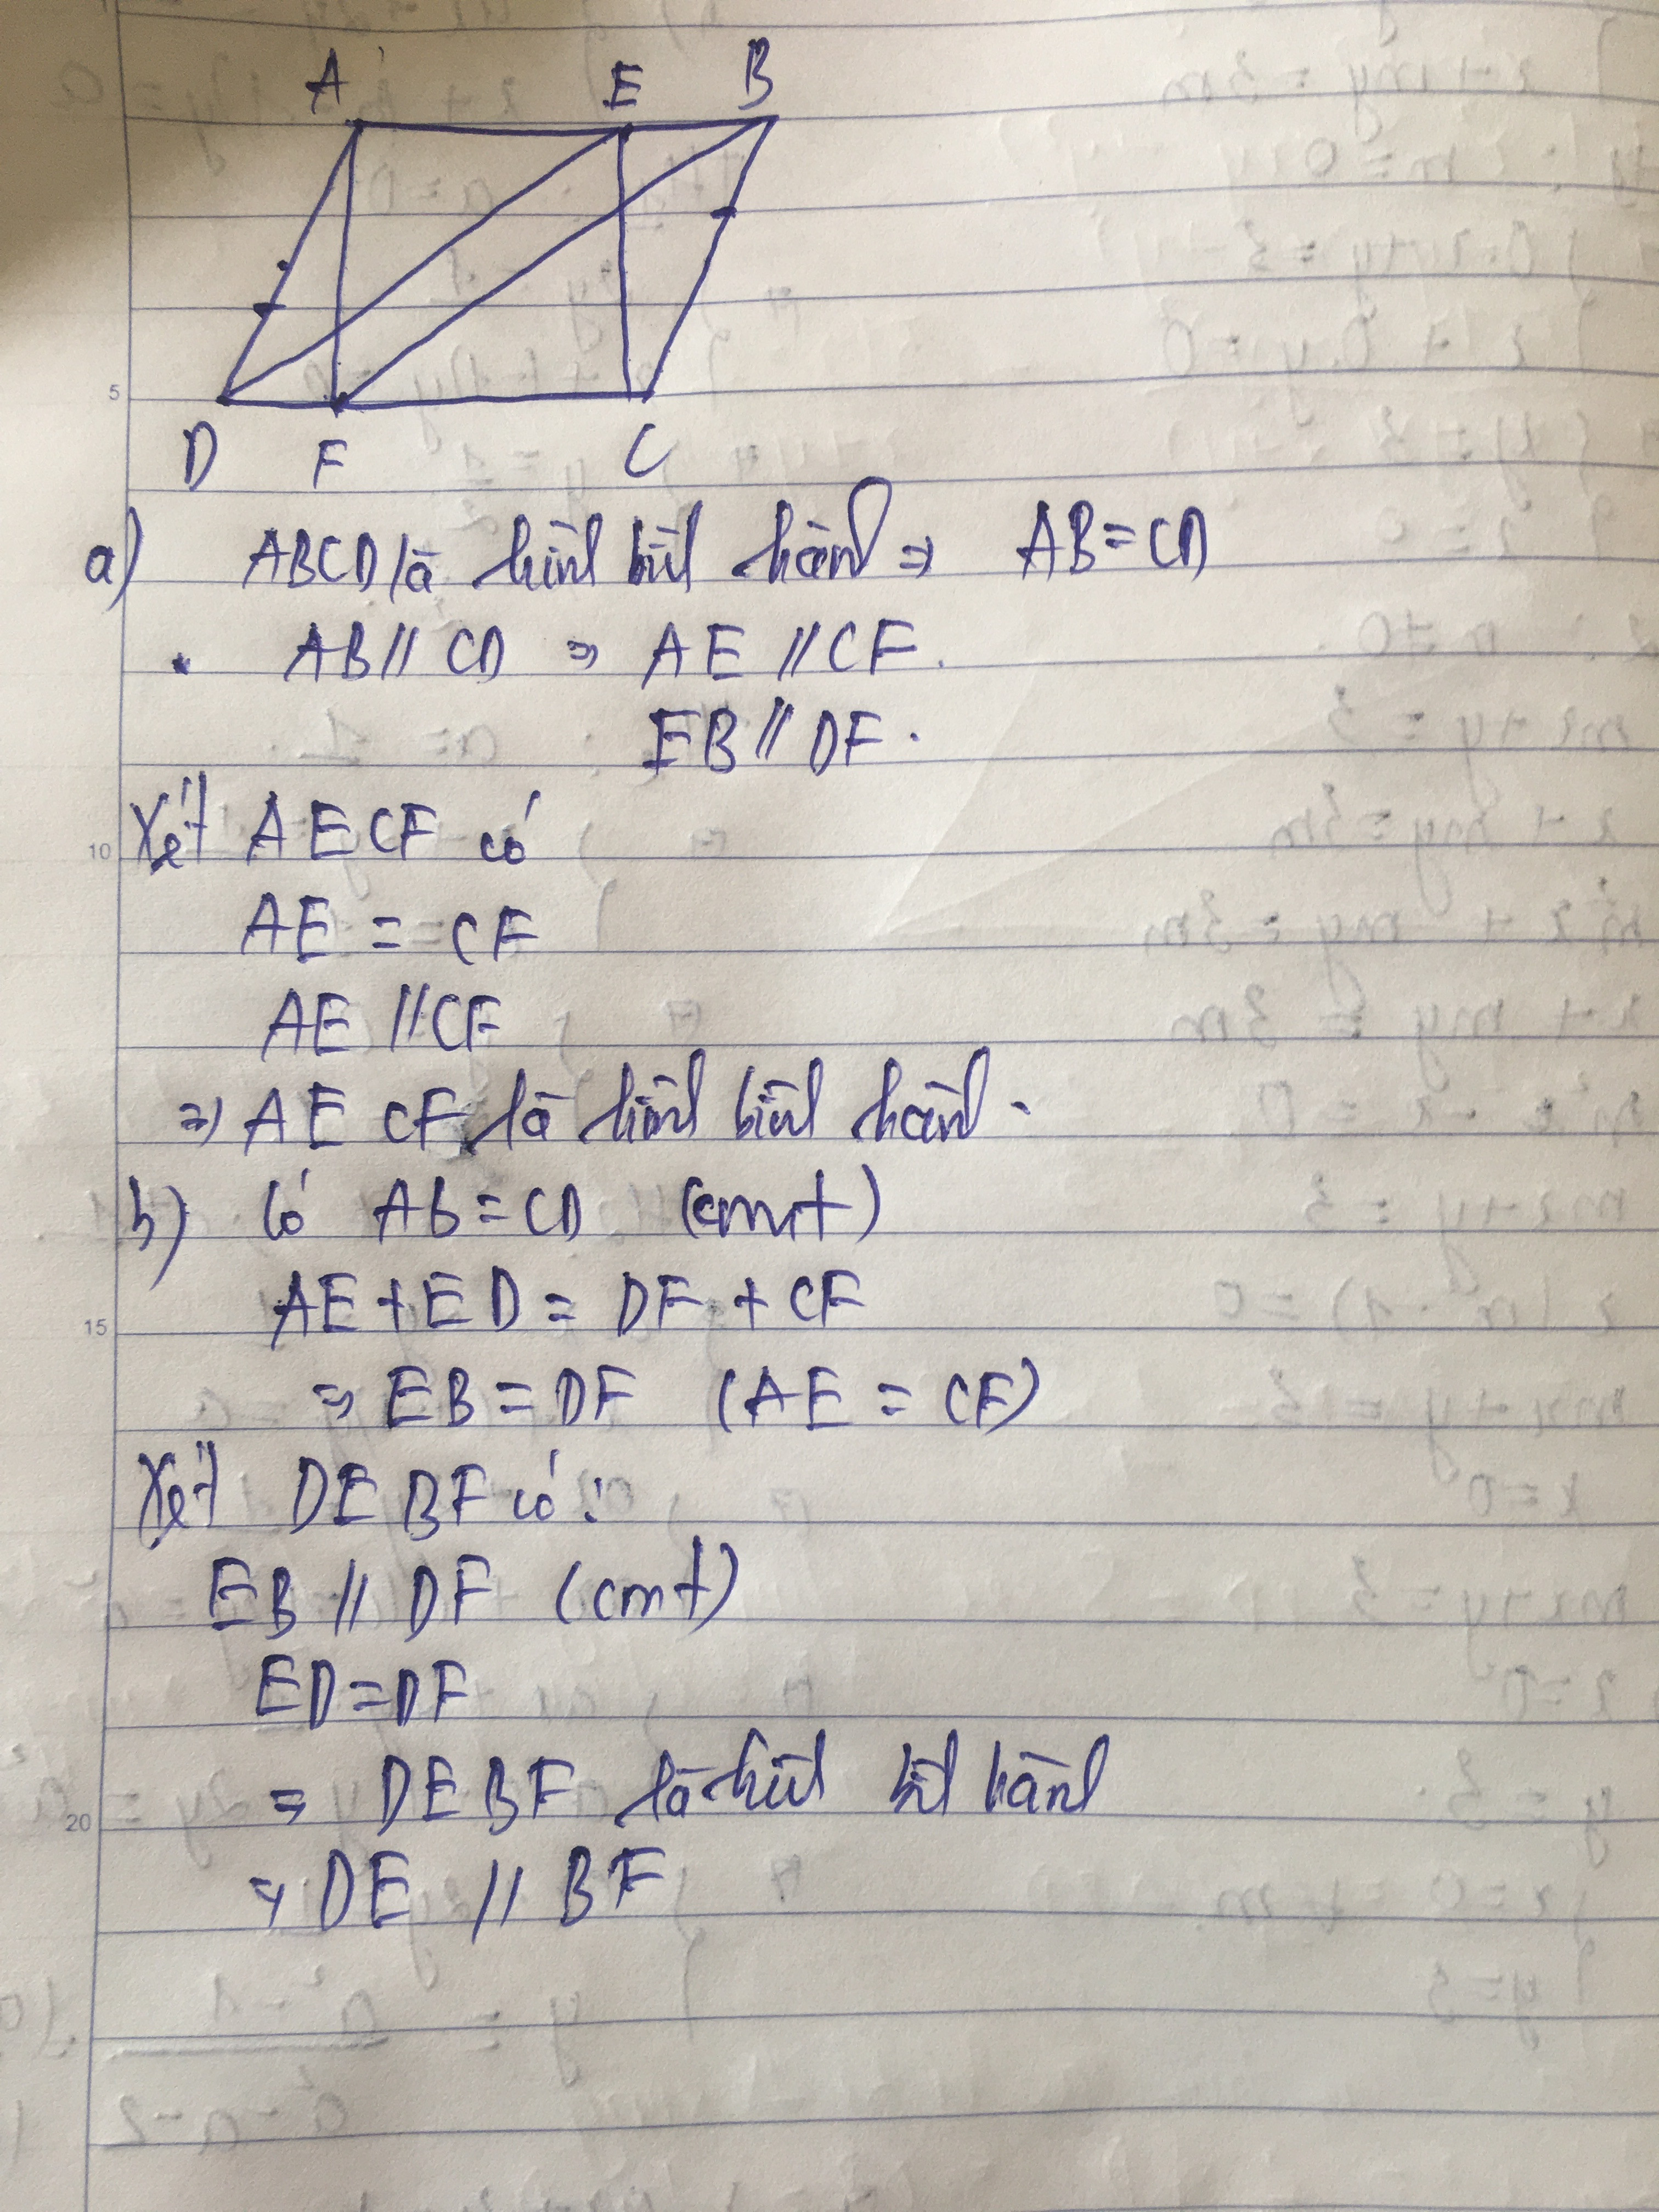 A E B
D F C
a) ABCD là hình bình hành => AB = CD
* AB // CD => AE // CF.
EB // DF.
Xét AECF có
AE = CF
AE // CF
=> AECF là hình bình hành.
b) Có AB = CD (cmt)
AE + ED = DF + CF
=> EB = DF (AE = CF)
Xét DEBF có:
EB // DF (cmt)
ED = DF
=> DEBF là hình bình hành
=> DE // BF
5
10
15
20